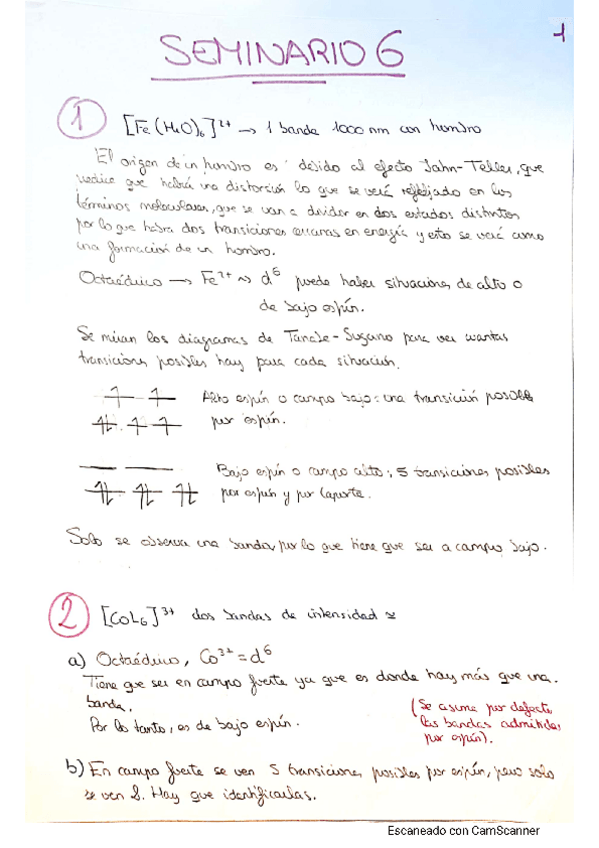 1
SEMINARIO 6
1 [Fe(H2O)6]2+ → 1 banda 1000 nm con hombro
El origen de un hombro es debido al efecto Jahn-Teller, que
predice que habrá una distorsión lo que se verá reflejado en los
términos moleculares, que se van a dividir en dos estados distintos
por lo que habrá dos transiciones cercanas en energía y esto se verá como
una formación de un hombro.
Octaédrico → Fe2+ ~> d6 puede haber situaciones de alto o
de bajo espín.
Se miran los diagramas de Tanabe-Sugano para ver cuantas
transiciones posibles hay para cada situación.
Alto espín o campo bajo: una transición posible
por espín.
Bajo espín o campo alto: 5 transiciones posibles
por espín y por Laporte.
Solo se observa una banda, por lo que tiene que ser a campo bajo.
2 [CoL6]3+ dos bandas de intensidad ≈
a) Octaédrico, Co3+ = d6
Tiene que ser en campo fuerte ya que es donde hay más que una
banda.
Por lo tanto, es de bajo espín.
(Se asume por defecto
las bandas admitidas
por espín).
b) En campo fuerte se ven 5 transiciones posibles por espín, pero solo
se ven 2. Hay que identificarlas.
Escaneado con CamScanner